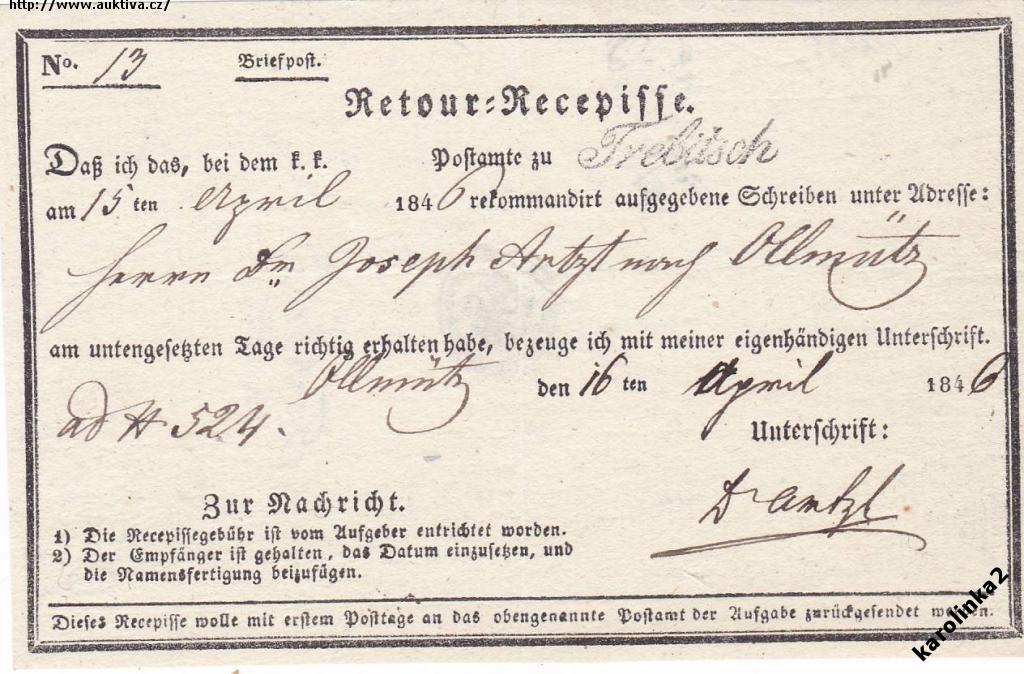 http://www.auktiva.cz/
No. 13 Briefpost.
Retour-Recepisse.
Daß ich das, bei dem k. k. Postamte zu Trebitsch
am 15 ten April 1846 rekommandirt aufgegebene Schreiben unter Adresse:
Herrn Dr. Joseph Artzt nach Ollmütz
am untengesetzten Tage richtig erhalten habe, bezeuge ich mit meiner eigenhändigen Unterschrift.
Ollmütz den 16 ten April 1846
ad # 524.
Unterschrift:
Zur Nachricht.
1) Die Recepissegebühr ist vom Aufgeber entrichtet worden.
2) Der Empfänger ist gehalten, das Datum einzusetzen, und
die Namensfertigung beizufügen.
Dieses Recepisse wolle mit erstem Posttage an das obengenannte Postamt der Aufgabe zurückgesendet werden.
karolinka2